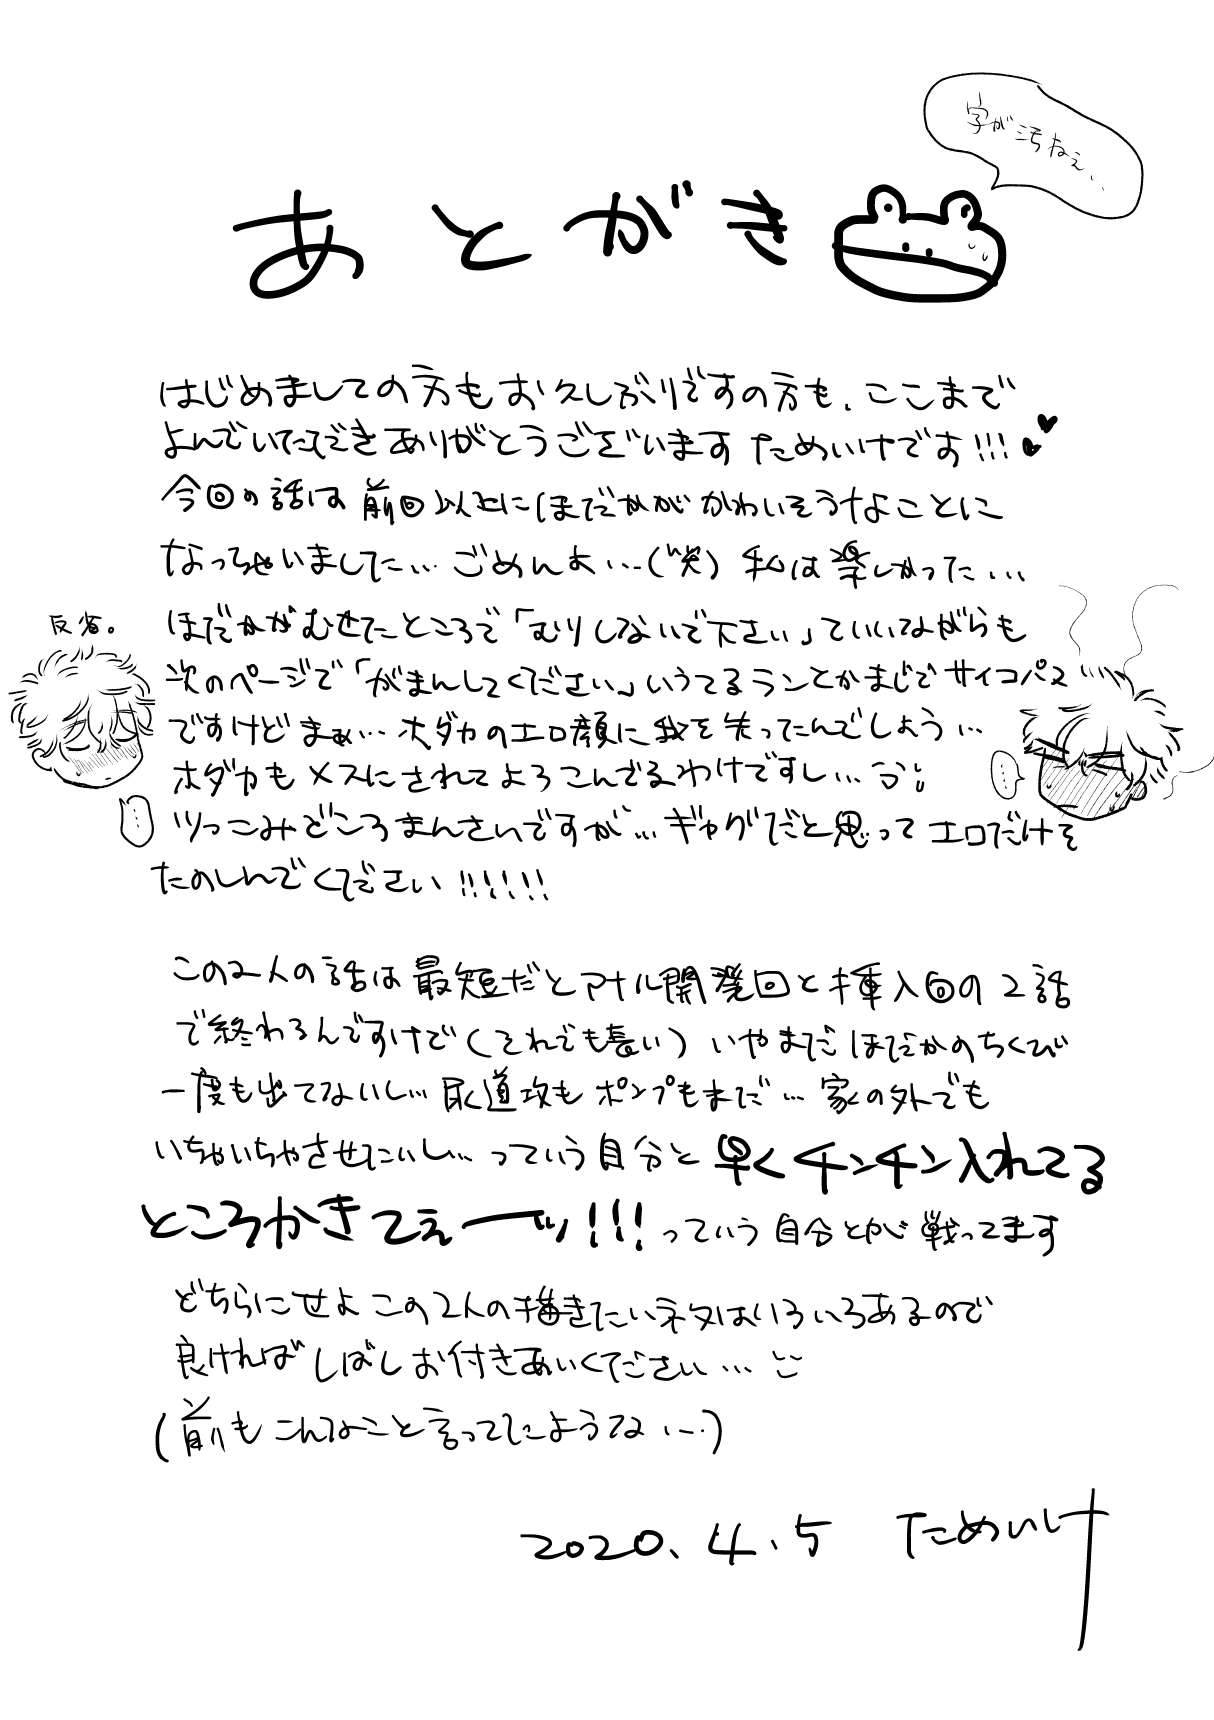 字が汚ねえ...
あとがき
はじめましての方もお久しぶりですの方も、ここまで
よんでいただきありがとうございます ためいけです!!!
今回の話は前回以上にほだかがかわいそうなことに
なっちゃいました…ごめんよ…(笑) 私は楽しかった…
反省。
ほだかがむせたところで「むりしないで下さい」っていいながらも
次のページで「がまんしてください」いうてるランとかまじでサイコパス
ですけどまぁ…ホダカのエロ顔に我を失ってたんでしょう…
ホダカもメスにされてよろこんでるわけですし…
ツっこみどころまんさいですが…ギャグだと思ってエロだけを
たのしんでください!!!!!!
この2人の話は最短だとアナル開発回と挿入回の2話
で終わるんですけど(それでも長い)いやまだほだかのちくび
一度も出てないし…尿道攻もポンプもまだ…家の外でも
いちゃいちゃさせたいし…っていう自分と早くチンチン入れてる
ところかきてぇーーッ!!!っていう自分とかが戦ってます
どちらにせよこの2人の描きたいネタはいろいろあるので
良ければしばしお付きあいください…
(前もこんなこと言ってたような…)
2020.4.5 ためいけ